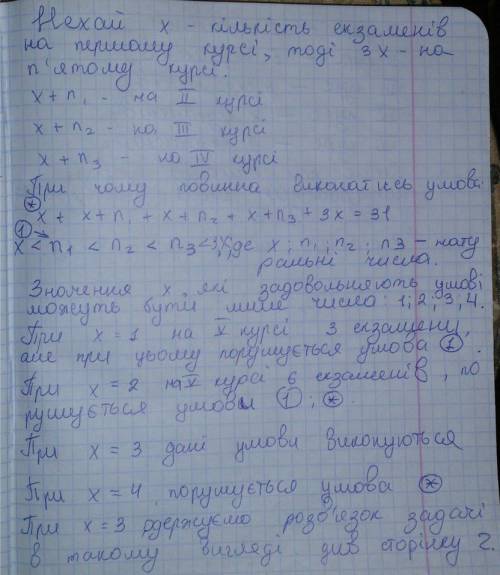 Нехай x - кількість екзаменів
на першому курсі, тоді 3x - на
п'ятому курсі.
x + n₁ - на II курсі
x + n₂ - на III курсі
x + n₃ - на IV курсі
При чому повинна виконатись умова
⊛ x + x + n₁ + x + n₂ + x + n₃ + 3x = 31
① x < n₁ < n₂ < n₃ < 3x, де x; n₁; n₂; n3 - нату
ральні числа.
Значення x, які задовольняють умові
можуть бути лише числа 1; 2; 3; 4.
При x = 1 на V курсі 3 екзамени,
але при цьому порушується умова ①.
При x = 2 на V курсі 6 екзаменів, по
рушується умови ①; ⊛.
При x = 3 дані умови виконуються
При x = 4 порушується умова ⊛
При x = 3 одержуємо розв'язок задачі
в такому вигляді див сторінку 2.